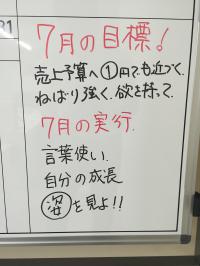 31
7月の目標!
売上予算へ①円でも近づく.
ねばり強く.欲を持って.
7月の実行.
言葉使い.
自分の成長
姿を見よ!!